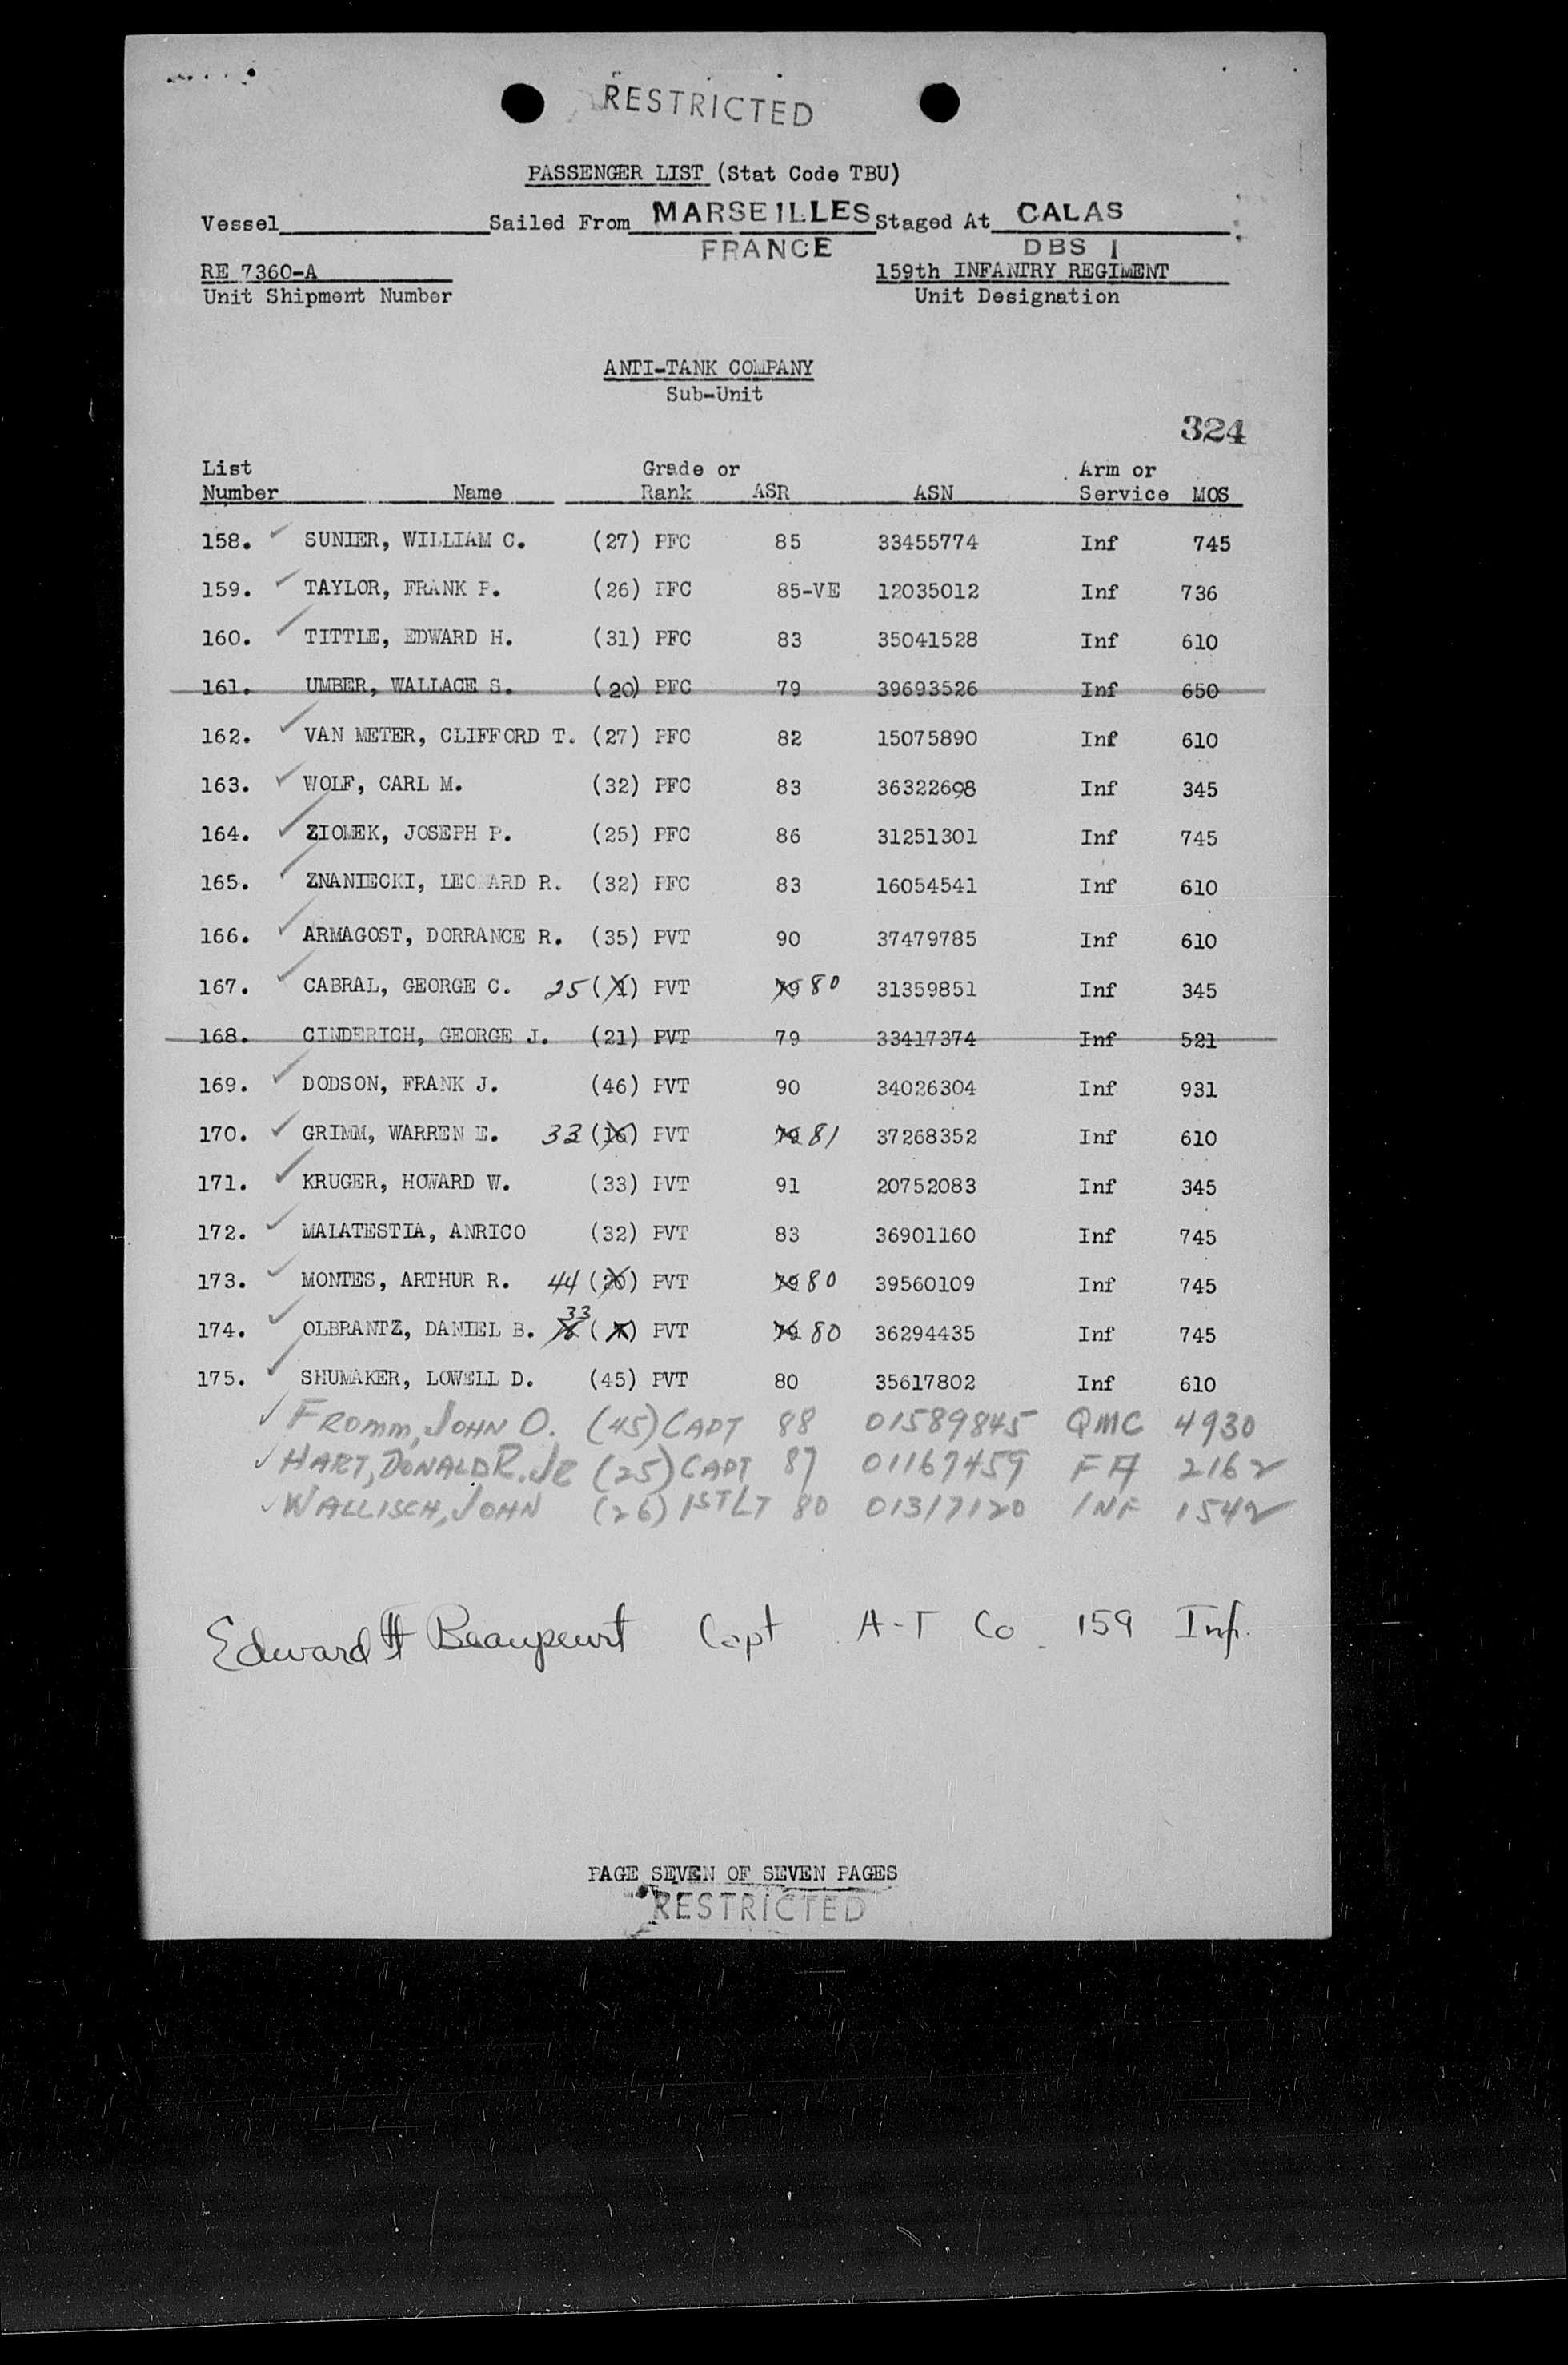 RESTRICTED
PASSENGER LIST (Stat Code TBU)
Vessel Sailed From MARSEILLES Staged At CALAS
FRANCE DBS 1
RE 7360-A 159th INFANTRY REGIMENT
Unit Shipment Number Unit Designation
ANTI-TANK COMPANY
Sub-Unit
324
List Grade or Arm or
Number Name Rank ASR ASN Service MOS
158. SUNIER, WILLIAM C. (27) PFC 85 33455774 Inf 745
159. TAYLOR, FRANK P. (26) PFC 85-VE 12035012 Inf 736
160. TITTLE, EDWARD H. (31) PFC 83 35041528 Inf 610
161. UMBER, WALLACE S. (20) PFC 79 39693526 Inf 650
162. VAN METER, CLIFFORD T. (27) PFC 82 15075890 Inf 610
163. WOLF, CARL M. (32) PFC 83 36322698 Inf 345
164. ZIOMEK, JOSEPH P. (25) PFC 86 31251301 Inf 745
165. ZNANIECKI, LEONARD R. (32) PFC 83 16054541 Inf 610
166. ARMAGOST, DORRANCE R. (35) PVT 90 37479785 Inf 610
167. CABRAL, GEORGE C. 25 ( ) PVT 79 80 31359851 Inf 345
168. CINDERICH, GEORGE J. (21) PVT 79 33417374 Inf 521
169. DODSON, FRANK J. (46) PVT 90 34026304 Inf 931
170. GRIMM, WARREN E. 33 (16) PVT 79 81 37268352 Inf 610
171. KRUGER, HOWARD W. (33) PVT 91 20752083 Inf 345
172. MALATESTIA, ANRICO (32) PVT 83 36901160 Inf 745
173. MONTES, ARTHUR R. 44 (20) PVT 79 80 39560109 Inf 745
174. OLBRANTZ, DANIEL B. 33 ( ) PVT 79 80 36294435 Inf 745
175. SHUMAKER, LOWELL D. (45) PVT 80 35617802 Inf 610
FROMM, JOHN O. (45) CAPT 88 01589845 QMC 4930
HART, DONALD R. JR (25) CAPT 87 01167459 FA 2162
WALLISCH, JOHN (26) 1ST LT 80 01317120 INF 1542
Edward H Capt A-T Co. 159 Inf.
PAGE SEVEN OF SEVEN PAGES
RESTRICTED